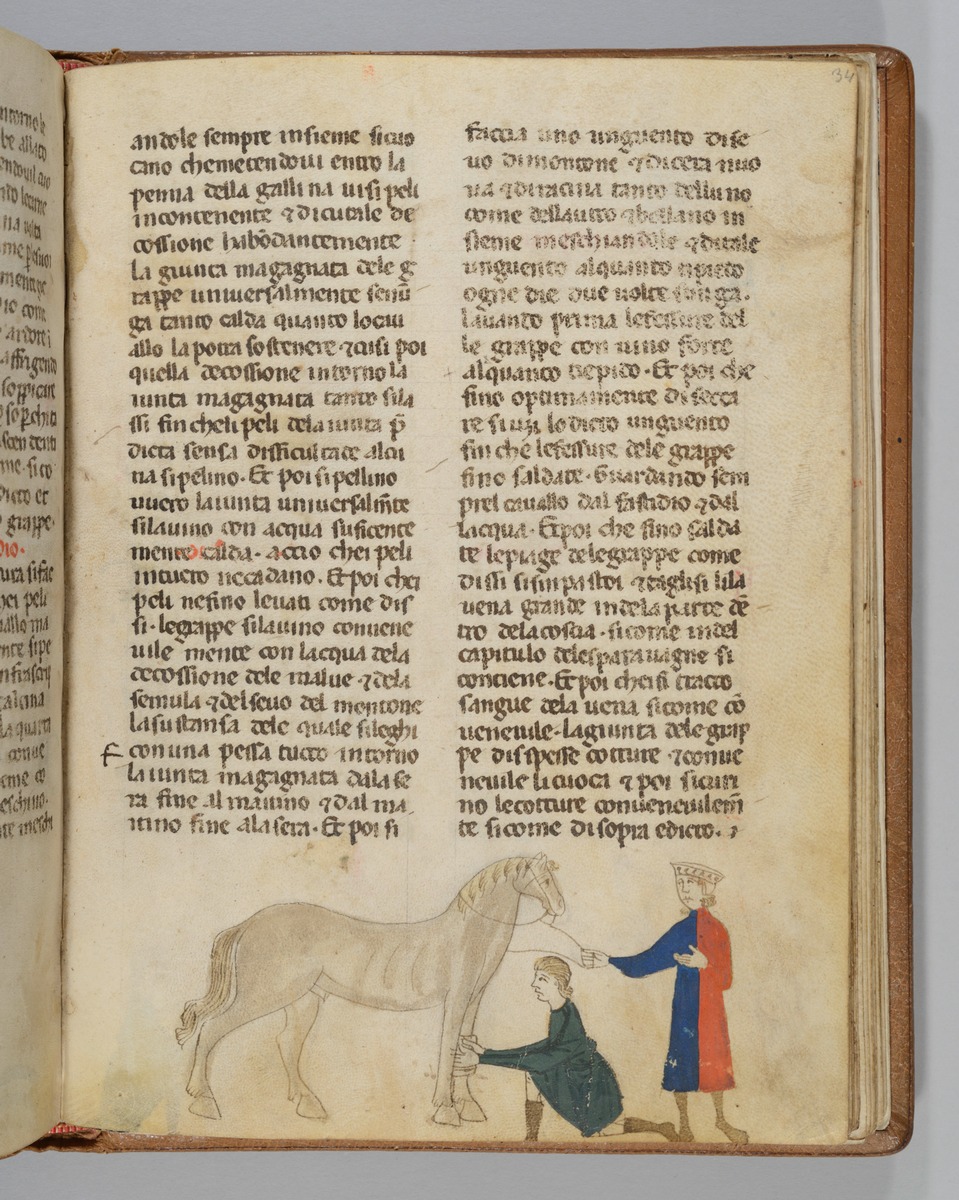 34
andole sempre insieme sicuo
cano chemectendoui entro la
penna della gallina uisi peli
incontenente ⁊ dicutale de
cossione habōdantemente
la giunta magagnata dele g
rappe uniuersalmente senū
ga tanto calda quanto locau
allo la potra sostenere ⁊ cusi poi
quella decossione intorno la
iunta magagnata tanto sila
ssi fin cheli peli dela iunta p̄
dicta sensa difficultate alcu
na sipelino. Et poi sipellino
uuero la iunta uniuersalm̄te
silauino con acqua suficente
mente calda. accio chei peli
intucto necadano. Et poi chei
peli nesino leuati come dis
si. le grappe silauino conuene
uile mente con lacqua dela
decossione dele malue ⁊ dela
semula ⁊ del seuo del montone
la sustansa dele quale sileghi
con una pessa tucto intorno
la iunta magagnata dala se
ra fine al matino ⁊ dal ma
itino fine ala sera. Et poi si
faccia uno unguento dise
uo dimontone ⁊ dicera nuo
ua ⁊ diracina tanto delluno
come dellautro ⁊ bollano in
sieme meschiandole ⁊ ditale
unguento alquanto
ogne die due uolte
lauando prima lefessure del
le grappe con uino forte
alquanto tiepido. Et poi che
sino optimamente disecca
re si lo dicto unguento
fin che lefessure dele grappe
sino saldate. Guardando sem
prel cauallo dal fastidio ⁊ dal
lacqua. Et poi che sino salda
te lepiage delegrappe come
dissi sisinpastoi ⁊ taglisi lila
uena grande indela parte dē
tro dela coscia. sicome indel
capitulo delesparauagne si
contiene. Et poi cheisi tracto
sangue dela uena sicome cō
ueneuile. lagiunta dele grap
pe dispesse cotture ⁊ conue
neuile licuoca ⁊ poi sicuri
no lecotture conueneuilem̄
te sicome disopra edicto.